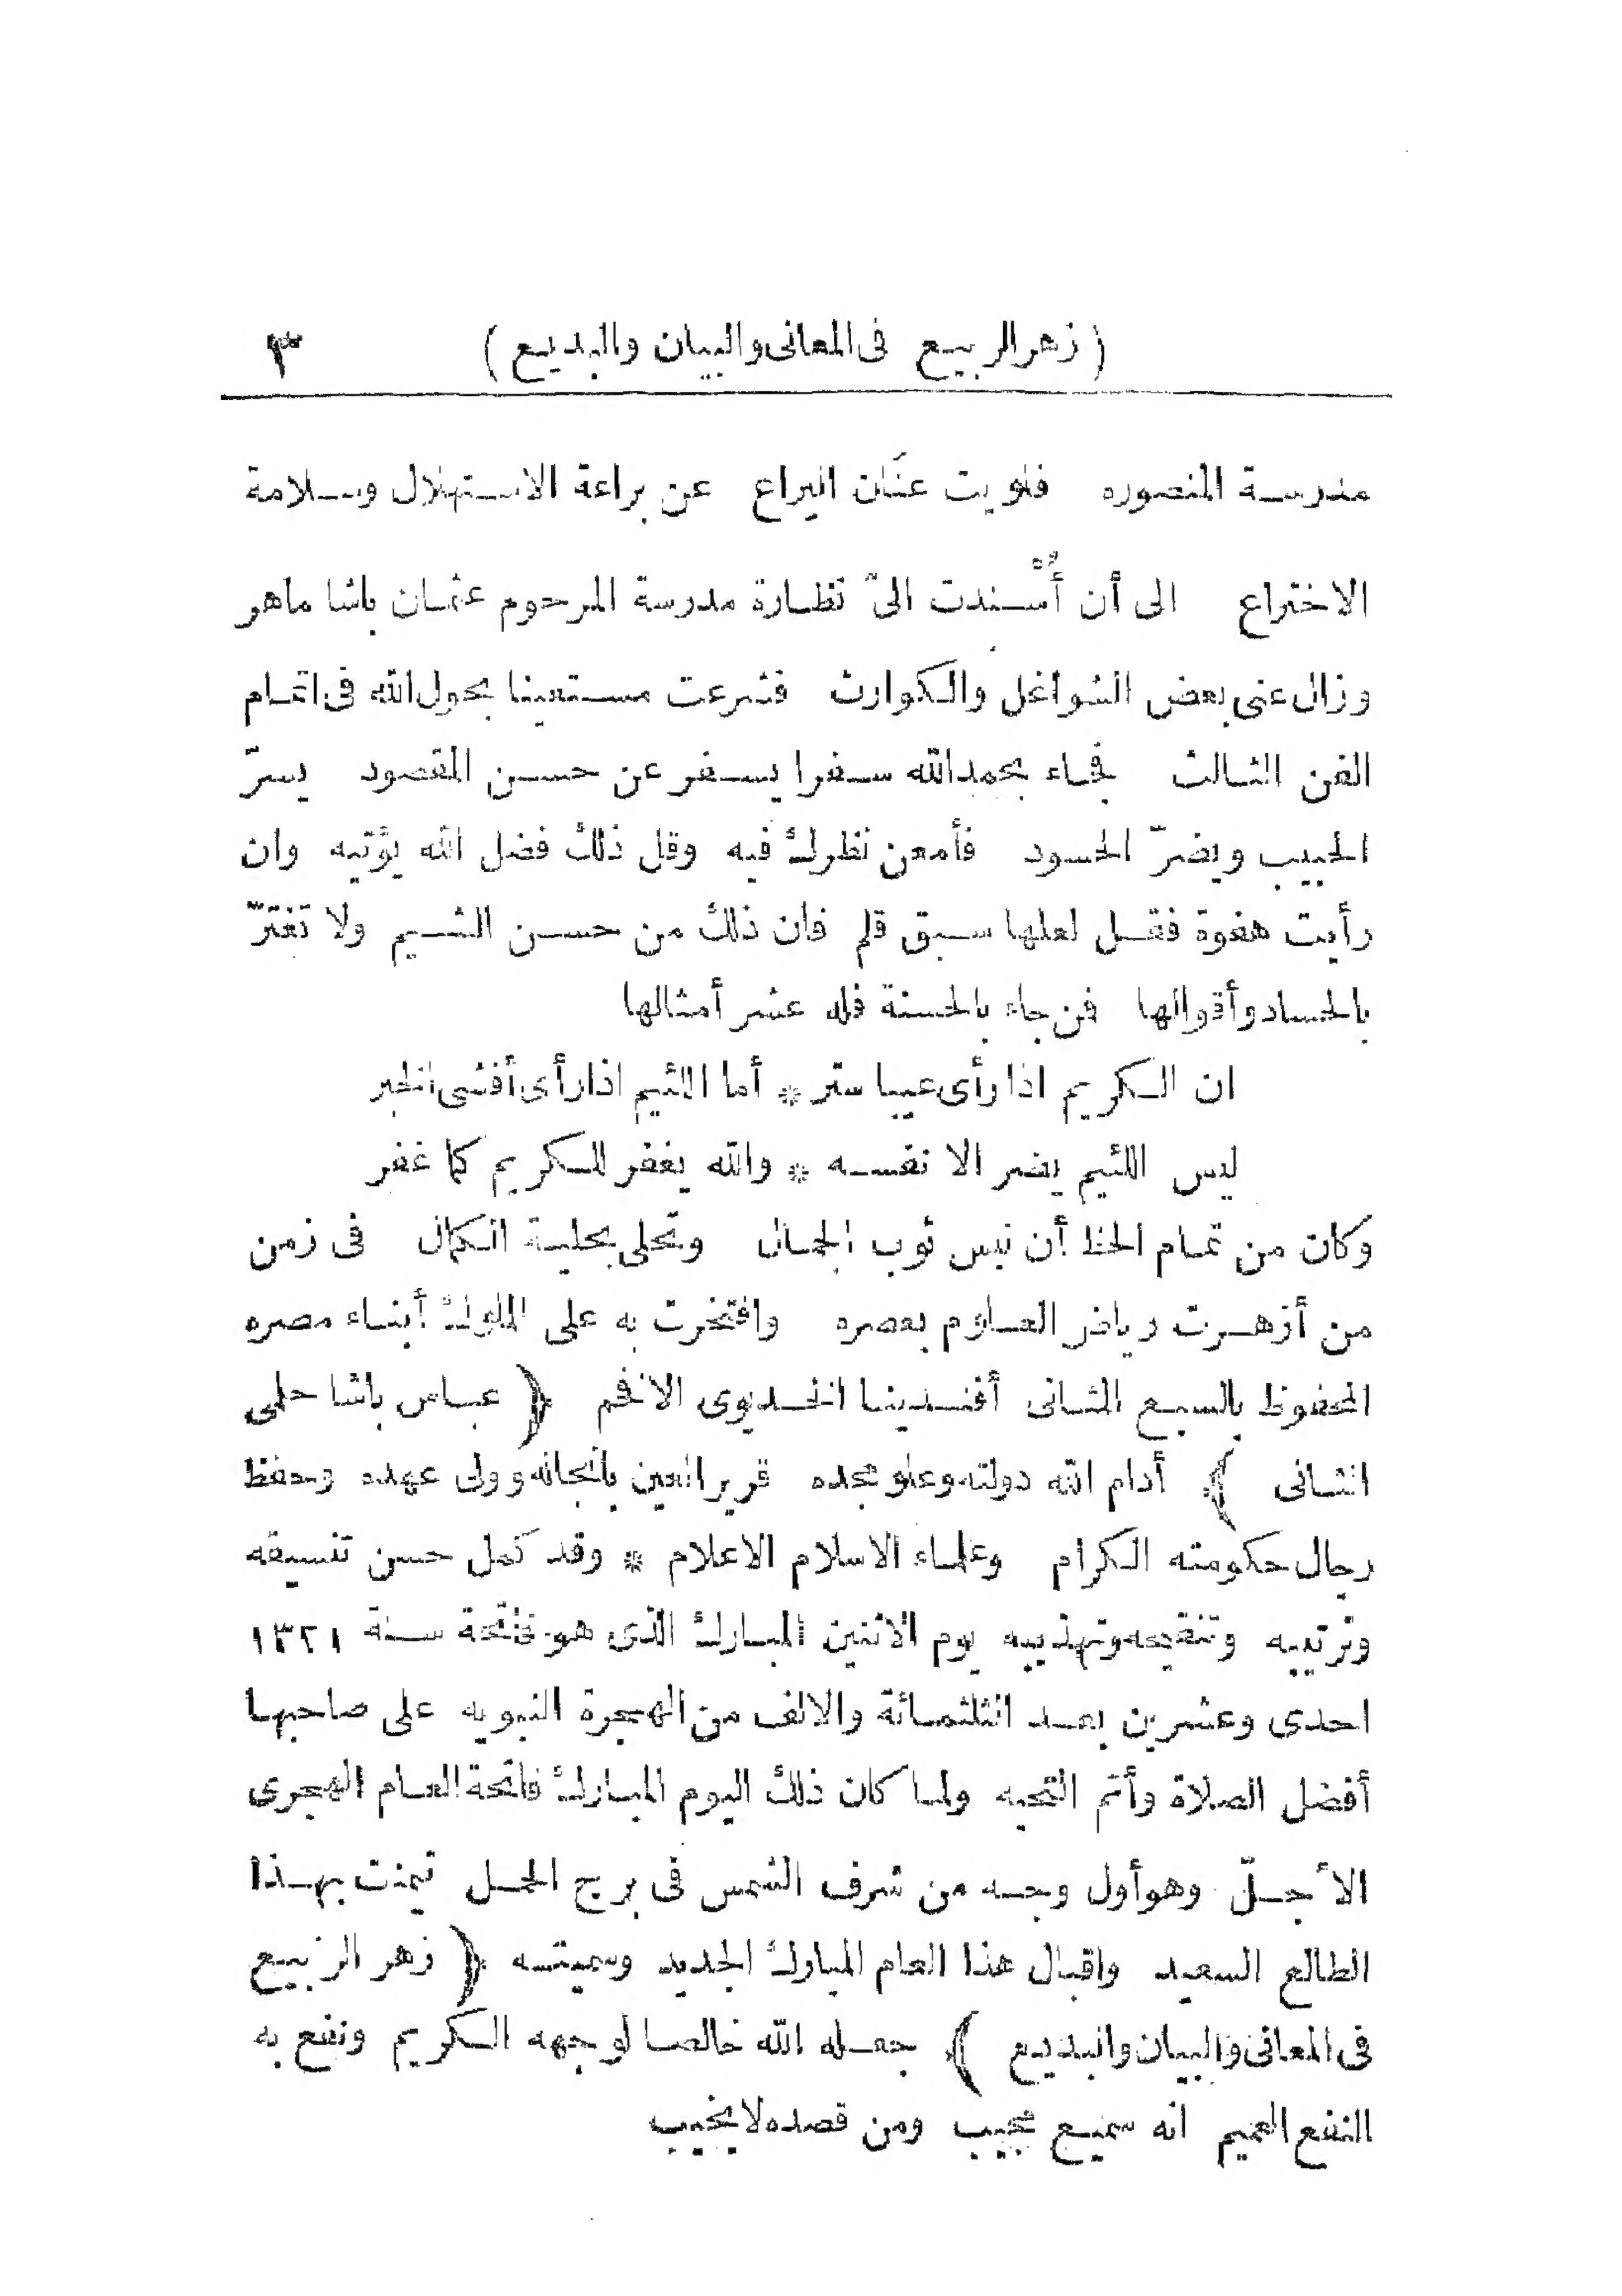 ( زهر الربيع فى المعانى والبيان والبديع ) ٣
مدرسة المنصوره فلويت عنَان اليراع عن براعة الاستهلال وسلامة
الاختراع الى أن أُسْندت الىّ نظارة مدرسة المرحوم عثمان باشا ماهر
وزال عنى بعض الشواغل والكوارث فشرعت مستعينا بحول الله فى اتمام
الفن الثالث فجاء بحمد الله سفرا يسفر عن حسن المقصود يسرّ
الحبيب ويضرّ الحسود فأمعن نظرك فيه وقل ذلك فضل الله يؤتيه وان
رأيت هفوة فقل لعلها سبق قلم فان ذلك من حسن الشيم ولا تغترّ
بالحساد وأقوالها فمن جاء بالحسنة فله عشر أمثالها
ان الكريم اذا رأى عيبا ستر * أما اللئيم اذا رأى أفشى الخبر
ليس اللئيم يضر الا نفسه * والله يغفر للكريم كما غفر
وكان من تمام الحظ أن لبس ثوب الجمال وتحلى بحلية الكمال فى زمن
من أزهرت رياض العلوم بعصره وافتخرت به على الملوك أبناء مصره
المحفوظ بالسبع المثانى أفندينا الخديوى الافخم ﴿ عباس باشا حلمى
الثانى ﴾ أدام الله دولته وعلو مجده قرير العين بانجاله وولى عهده وحفظ
رجال حكومته الكرام وعلماء الاسلام الاعلام * وقد كمل حسن تنسيقه
وترتيبه وتنقيحه وتهذيبه يوم الاثنين المبارك الذى هو فاتحة سنة ١٣٢١
احدى وعشرين بعد الثلثمائة والالف من الهجرة النبويه على صاحبها
أفضل الصلاة وأتم التحيه ولما كان ذلك اليوم المبارك فاتحة العام الهجرى
الأجلّ وهو أول وجه من شرف الشمس فى برج الحمل تيمنت بهذا
الطالع السعيد واقبال هذا العام المبارك الجديد وسميته ﴿ زهر الربيع
فى المعانى والبيان والبديع ﴾ جعله الله خالصا لوجهه الكريم ونفع به
النفع العميم انه سميع مجيب ومن قصده لا يخيب